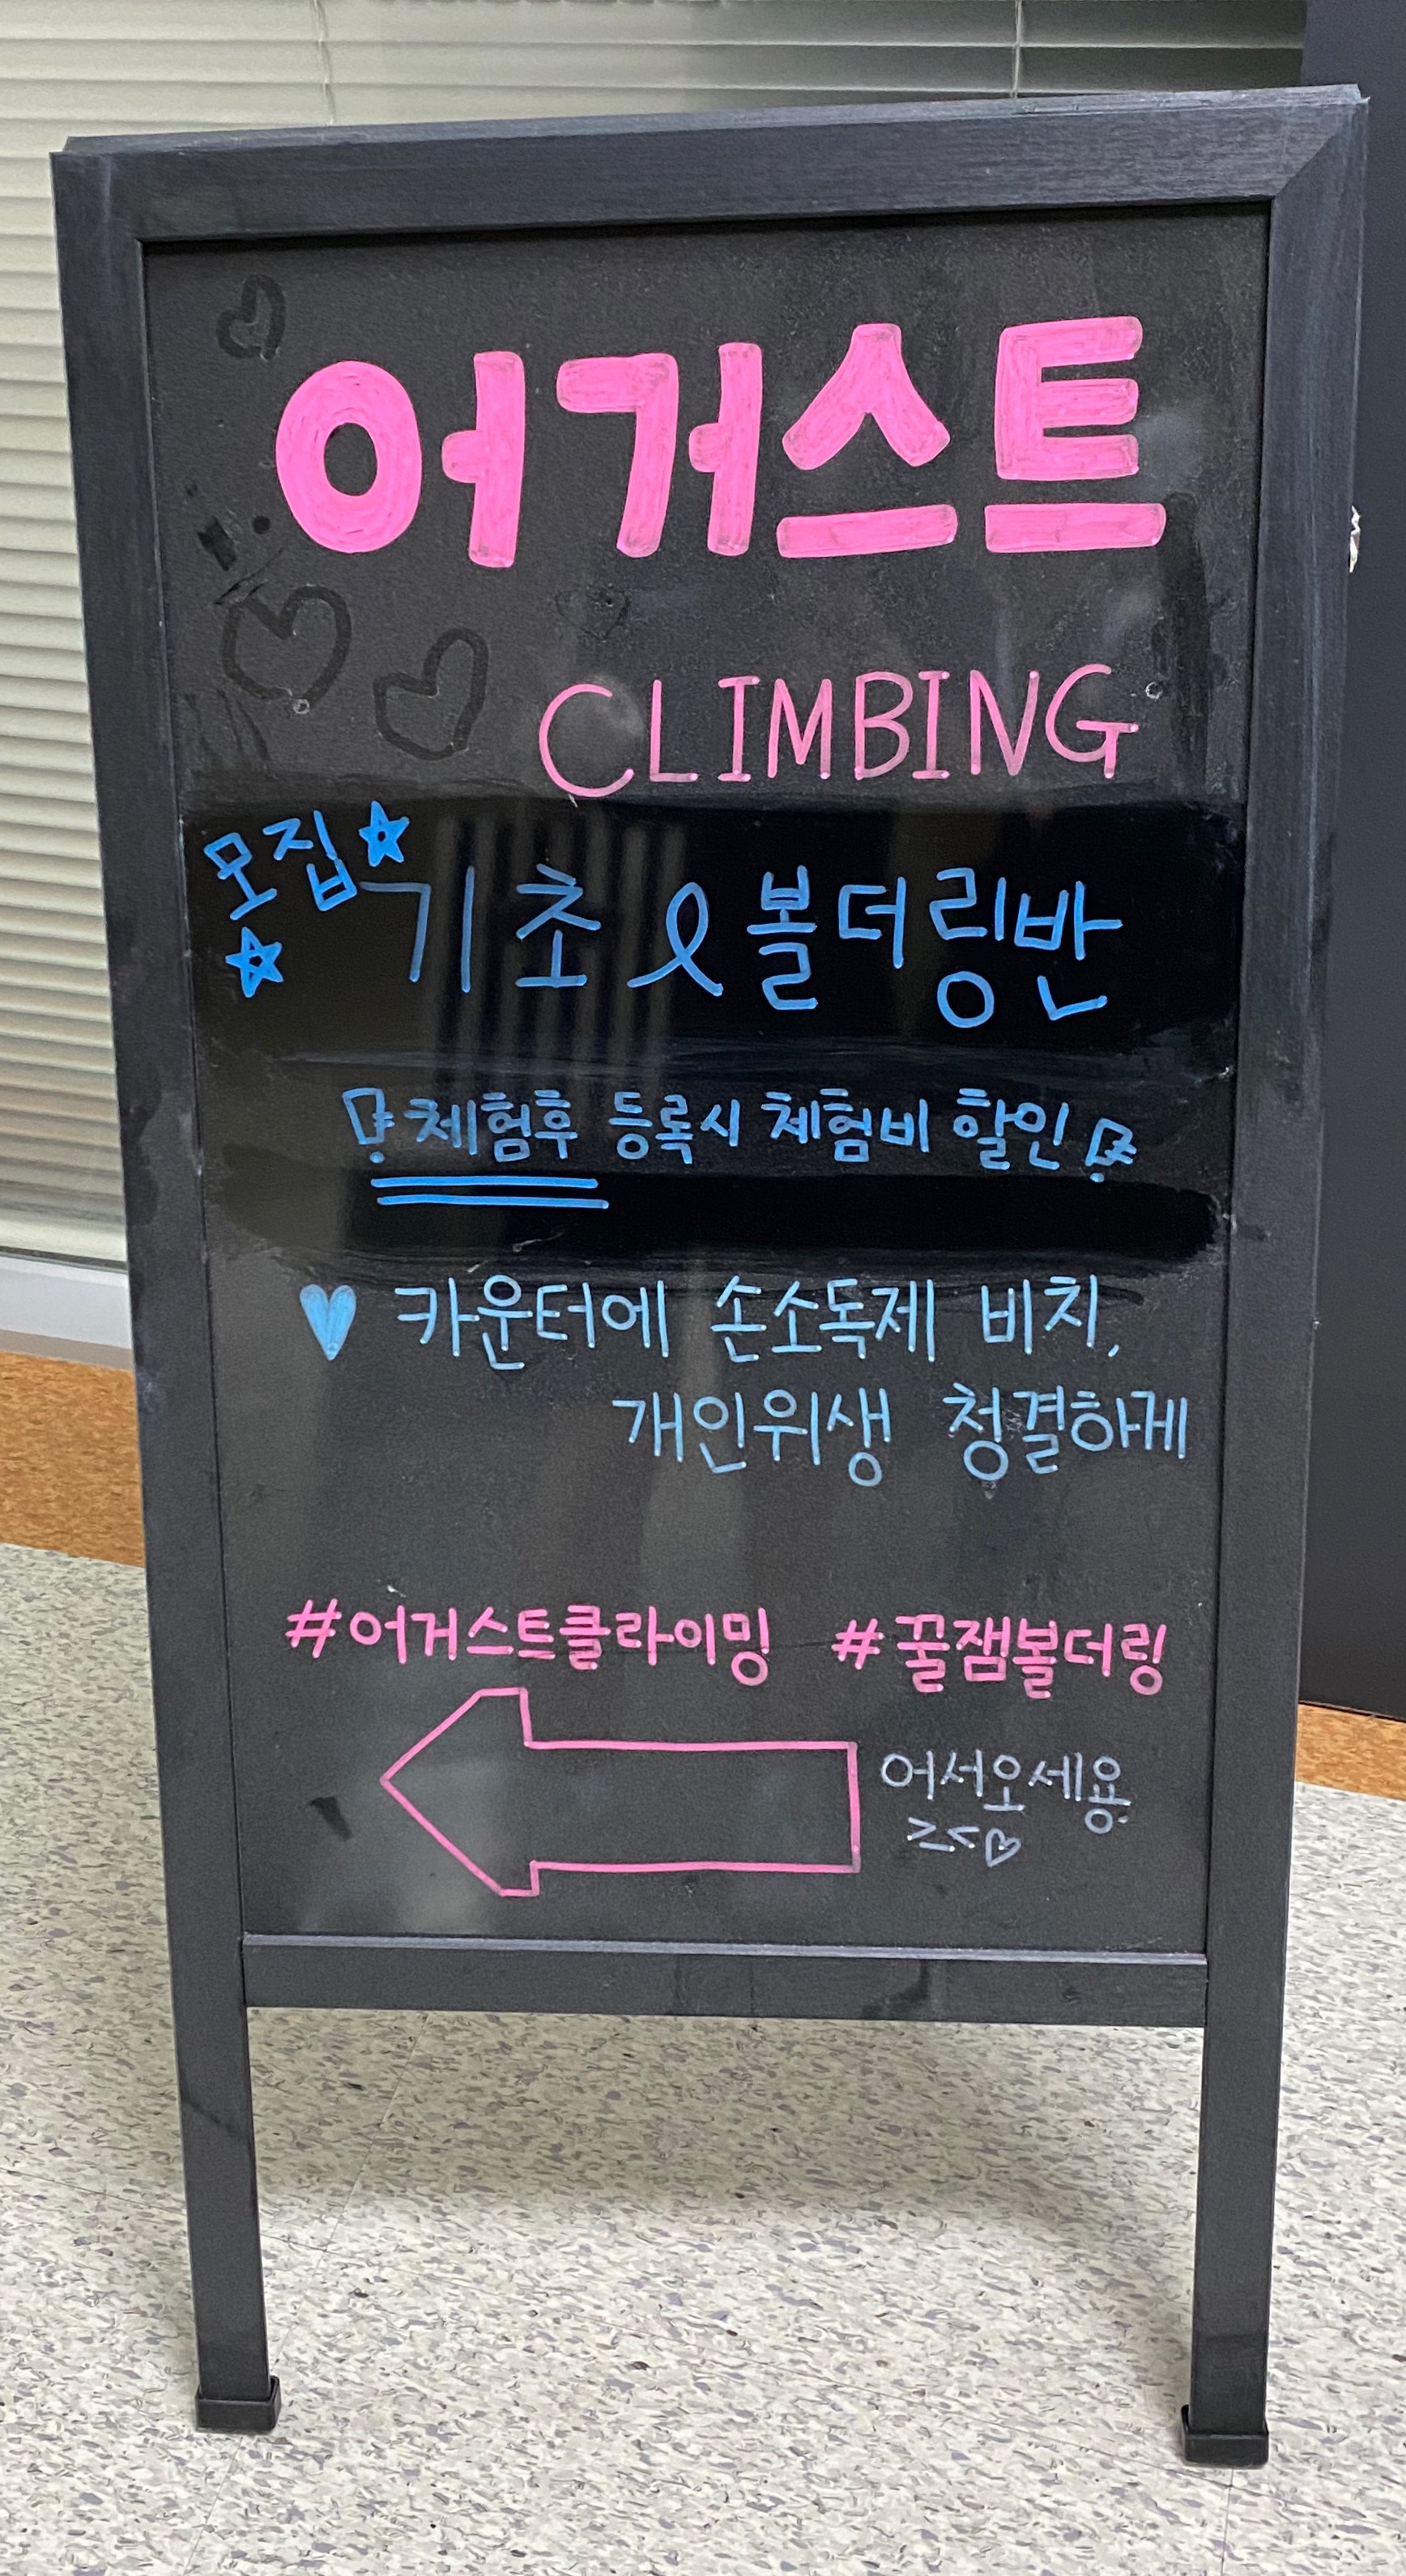 어거스트
CLIMBING
모집
기초 & 볼더링반
체험후 등록시 체험비 할인
카운터에 손소독제 비치,
개인위생 청결하게
#어거스트클라이밍 #꿀잼볼더링
어서오세용
≥≤♡